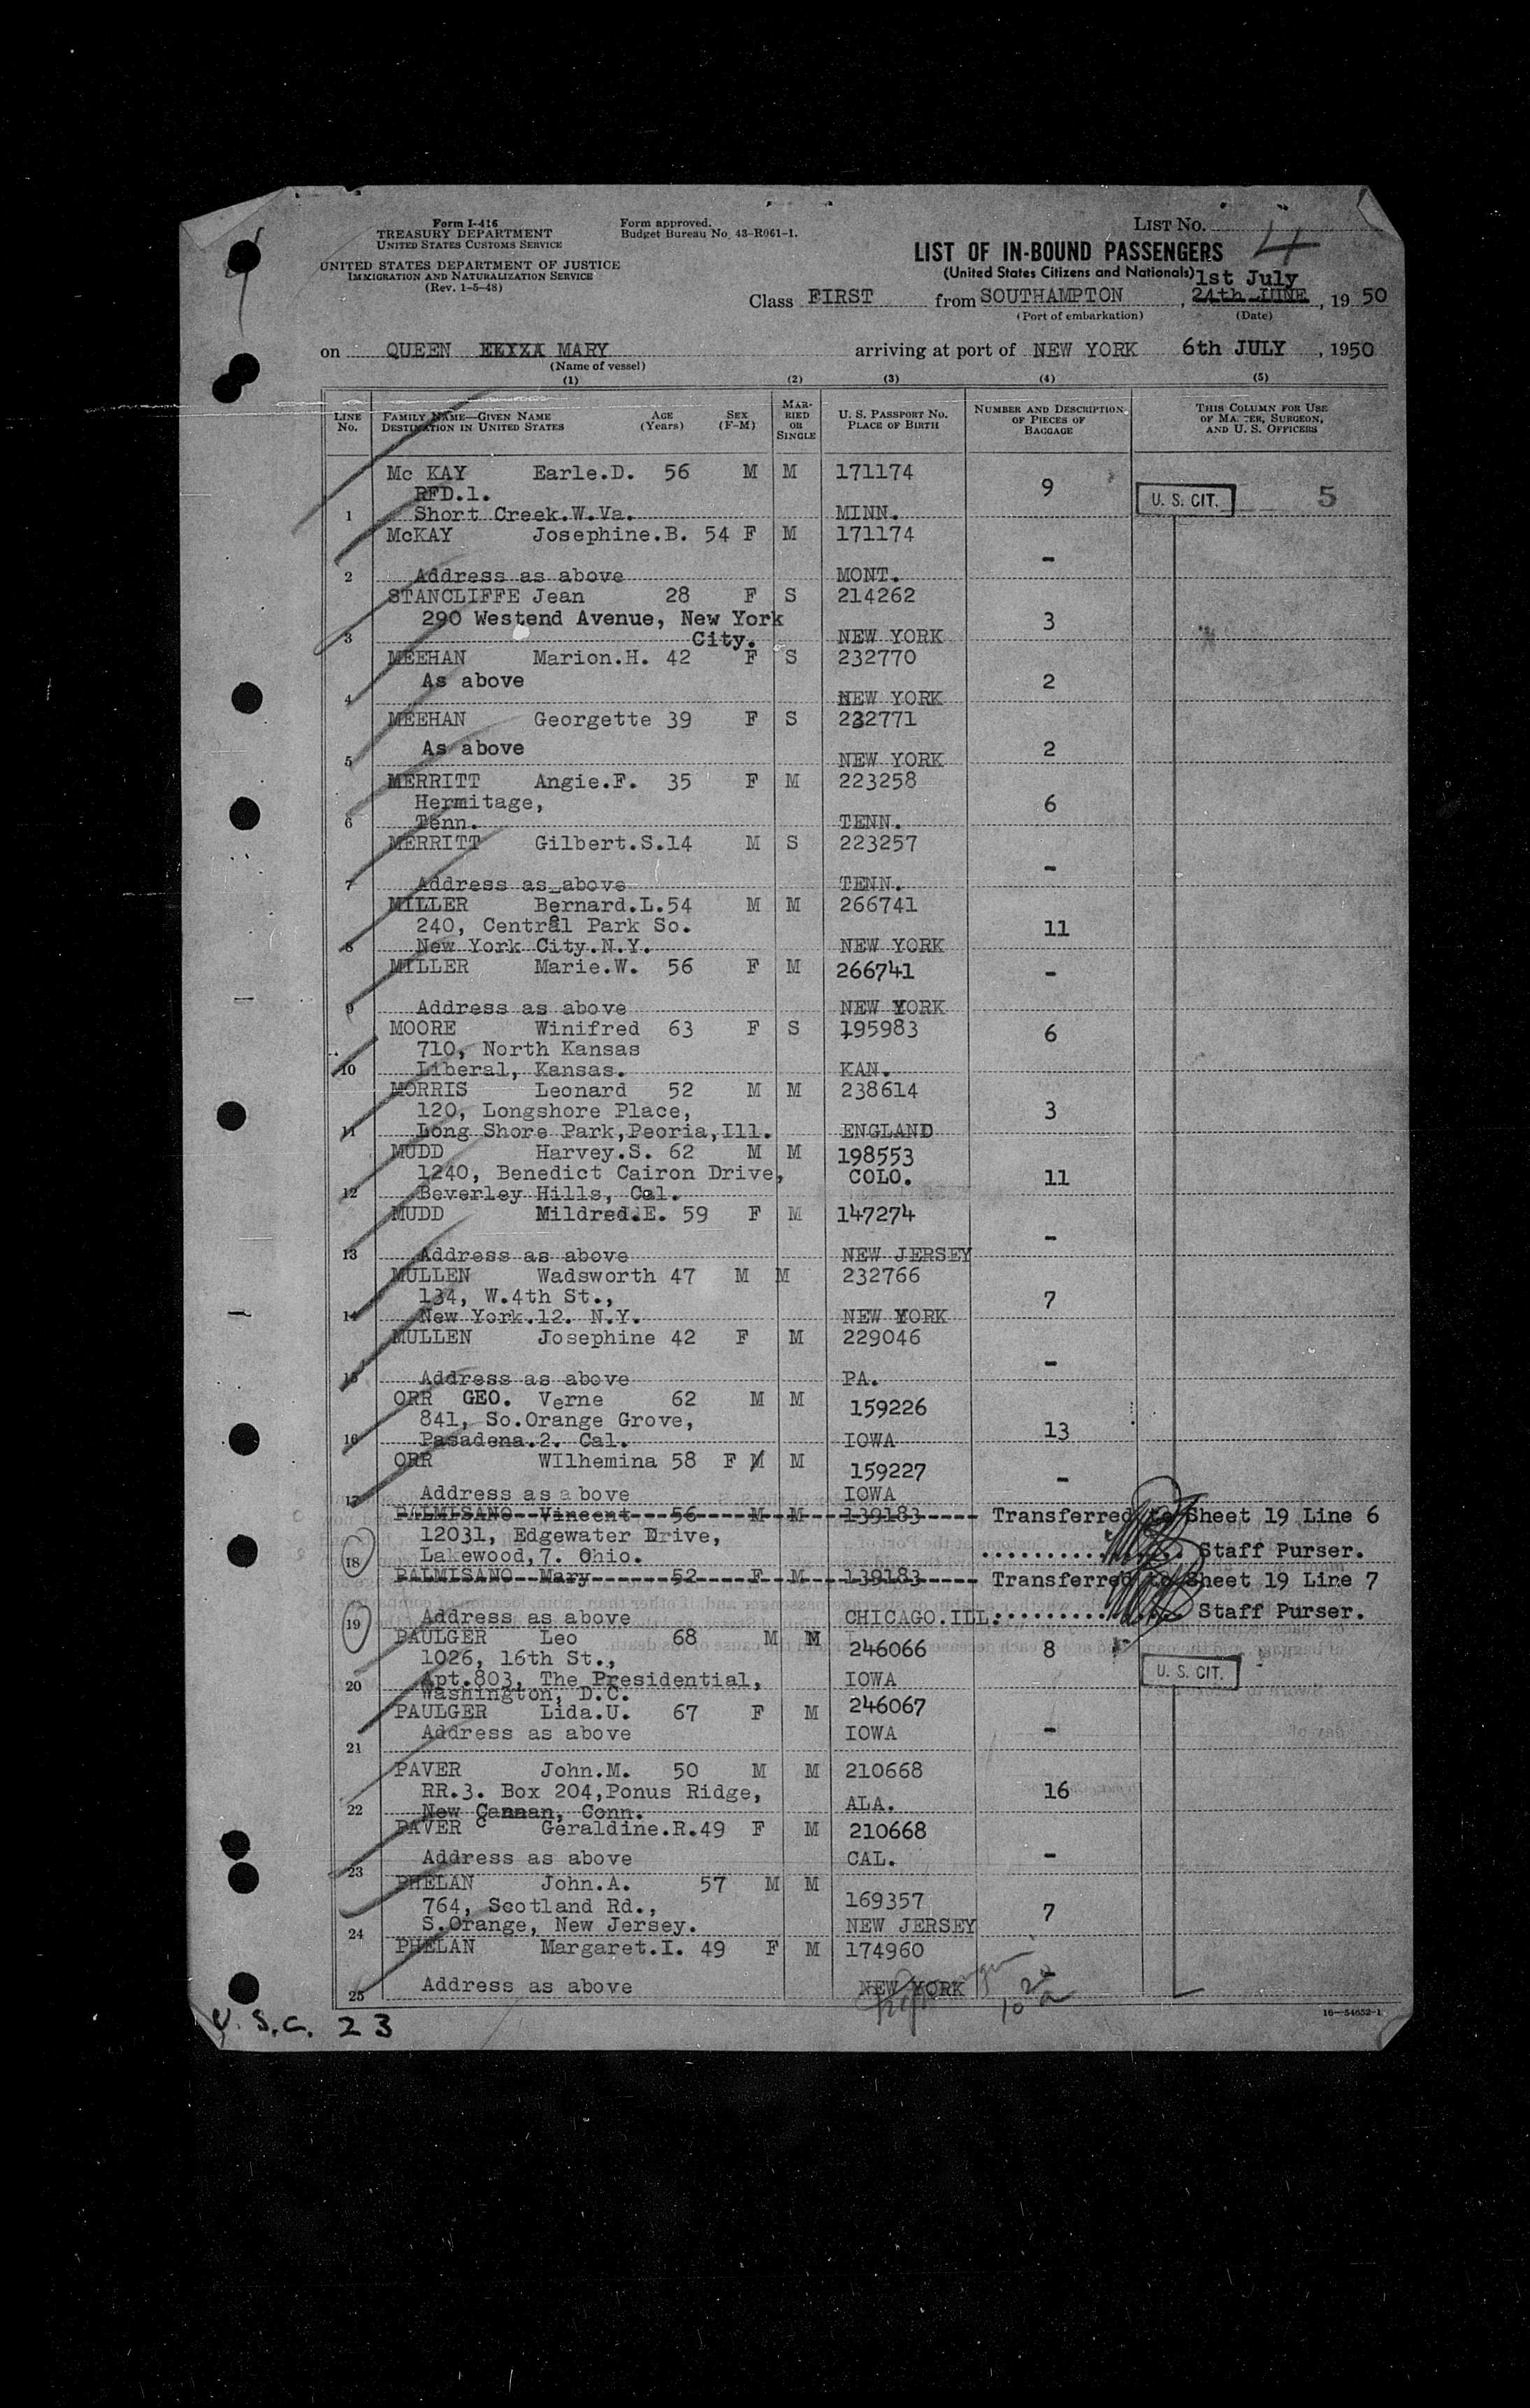 Form I-416
TREASURY DEPARTMENT
UNITED STATES CUSTOMS SERVICE
UNITED STATES DEPARTMENT OF JUSTICE
IMMIGRATION AND NATURALIZATION SERVICE
(Rev. 1-5-48)
Form approved.
Budget Bureau No. 43-R061-1.
LIST No. 4
LIST OF IN-BOUND PASSENGERS
(United States Citizens and Nationals)
1st July
Class FIRST from SOUTHAMPTON, 24th JUNE, 19 50
(Port of embarkation) (Date)
on QUEEN MARY arriving at port of NEW YORK 6th JULY, 1950
(Name of vessel)
(1) (2) (3) (4) (5)
LINE No. FAMILY NAME—GIVEN NAME DESTINATION IN UNITED STATES AGE (Years) SEX (F-M) MARRIED OR SINGLE U. S. PASSPORT No. PLACE OF BIRTH NUMBER AND DESCRIPTION OF PIECES OF BAGGAGE THIS COLUMN FOR USE OF MASTER, SURGEON, AND U. S. OFFICERS
Mc KAY Earle.D. 56 M M 171174
RFD.1. 9 U. S. CIT. 5
1 Short Creek.W.Va. MINN.
McKAY Josephine.B. 54 F M 171174
-
2 Address as above MONT.
STANCLIFFE Jean 28 F S 214262
290 Westend Avenue, New York 3
3 City. NEW YORK
MEEHAN Marion.H. 42 F S 232770
As above 2
4 NEW YORK
MEEHAN Georgette 39 F S 232771
As above 2
5 NEW YORK
MERRITT Angie.F. 35 F M 223258
Hermitage, 6
6 Tenn. TENN.
MERRITT Gilbert.S.14 M S 223257
-
7 Address as above TENN.
MILLER Bernard.L.54 M M 266741
240, Central Park So. 11
8 New York City.N.Y. NEW YORK
MILLER Marie.W. 56 F M 266741
-
9 Address as above NEW YORK
MOORE Winifred 63 F S 195983
710, North Kansas 6
10 Liberal, Kansas. KAN.
MORRIS Leonard 52 M M 238614
120, Longshore Place, 3
11 Long Shore Park,Peoria,Ill. ENGLAND
MUDD Harvey.S. 62 M M 198553
1240, Benedict Cairon Drive, COLO. 11
12 Beverley Hills, Cal.
MUDD Mildred.E. 59 F M 147274
-
13 Address as above NEW JERSEY
MULLEN Wadsworth 47 M M 232766
134, W.4th St., 7
14 New York.12. N.Y. NEW YORK
MULLEN Josephine 42 F M 229046
-
15 Address as above PA.
ORR GEO. Verne 62 M M 159226
841, So.Orange Grove, 13
16 Pasadena.2. Cal. IOWA
ORR WIlhemina 58 F M M 159227
-
17 Address as above IOWA
PALMISANO Vincent 56 M M 139183 Transferred to Sheet 19 Line 6
12031, Edgewater Drive,
18 Lakewood,7. Ohio. Staff Purser.
PALMISANO Mary 52 F M 139183 Transferred to Sheet 19 Line 7
19 Address as above CHICAGO.ILL. Staff Purser.
PAULGER Leo 68 M M 246066 8
1026, 16th St.,
20 Apt.803, The Presidential, IOWA U. S. CIT.
Washington, D.C.
PAULGER Lida.U. 67 F M 246067
Address as above IOWA -
21
PAVER John.M. 50 M M 210668
RR.3. Box 204,Ponus Ridge, 16
22 New Cannan, Conn. ALA.
c
PAVER Geraldine.R.49 F M 210668
23 Address as above CAL. -
PHELAN John.A. 57 M M 169357
764, Scotland Rd., 7
24 S.Orange, New Jersey. NEW JERSEY
PHELAN Margaret.I. 49 F M 174960
25 Address as above NEW YORK
16—54652-1
U.S.C. 23